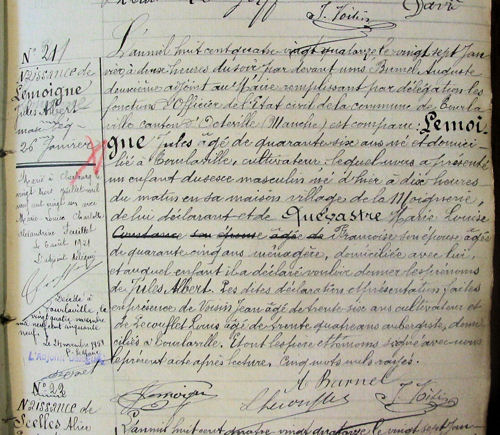 J. Voisin
David
N° 21
Naissance de
Lemoigne
Jules Albert
masc. lég.
26 Janvier
Marié à Cherbourg le
vingt
mil neuf cent vingt un avec
Marie-Louise Charlotte
Alexandrine
Le 6 août 1921
Décédé à
Tourlaville, le
vingt quatre novembre
mil neuf cent cinquante
neuf.
L'Adjoint
L'an mil huit cent quatre vingt quatorze le vingt sept Jan
vier à douze heures du soir par devant nous Burnel Auguste
deuxième adjoint au Maire remplissant par délégation les
fonctions d'Officier de l'état civil de la commune de Tourla
ville canton d'Octeville (Manche) est comparu : Lemoi
gne Jules âgé de quarante six ans né et domici
lié à Tourlaville, cultivateur, lequel nous a présenté
un enfant du sexe masculin né d'hier à dix heures
du matin en sa maison village de la Moignerie,
de lui déclarant et de Quévastre Marie Louise
Constance son épouse âgée de Françoise son épouse, âgée
de quarante cinq ans ménagère, domiciliée avec lui,
et auquel enfant il a déclaré vouloir donner les prénoms
de Jules Albert. Les dites déclaration et présentation faites
en présence de Voisin Jean âgé de trente six ans cultivateur et
de Lecouflet Louis âgé de trente quatre ans aubergiste, domi
ciliés à Tourlaville. Et ont les père et témoins signé avec nous
le présent acte après lecture. Cinq mots nuls rayés.
A Burnel
Lemoigne
L Lecouflet
J. Voisin
N° 22
Naissance de
Scelles Alice
L'an mil huit cent quatre vingt quatorze le vingt sept Jan